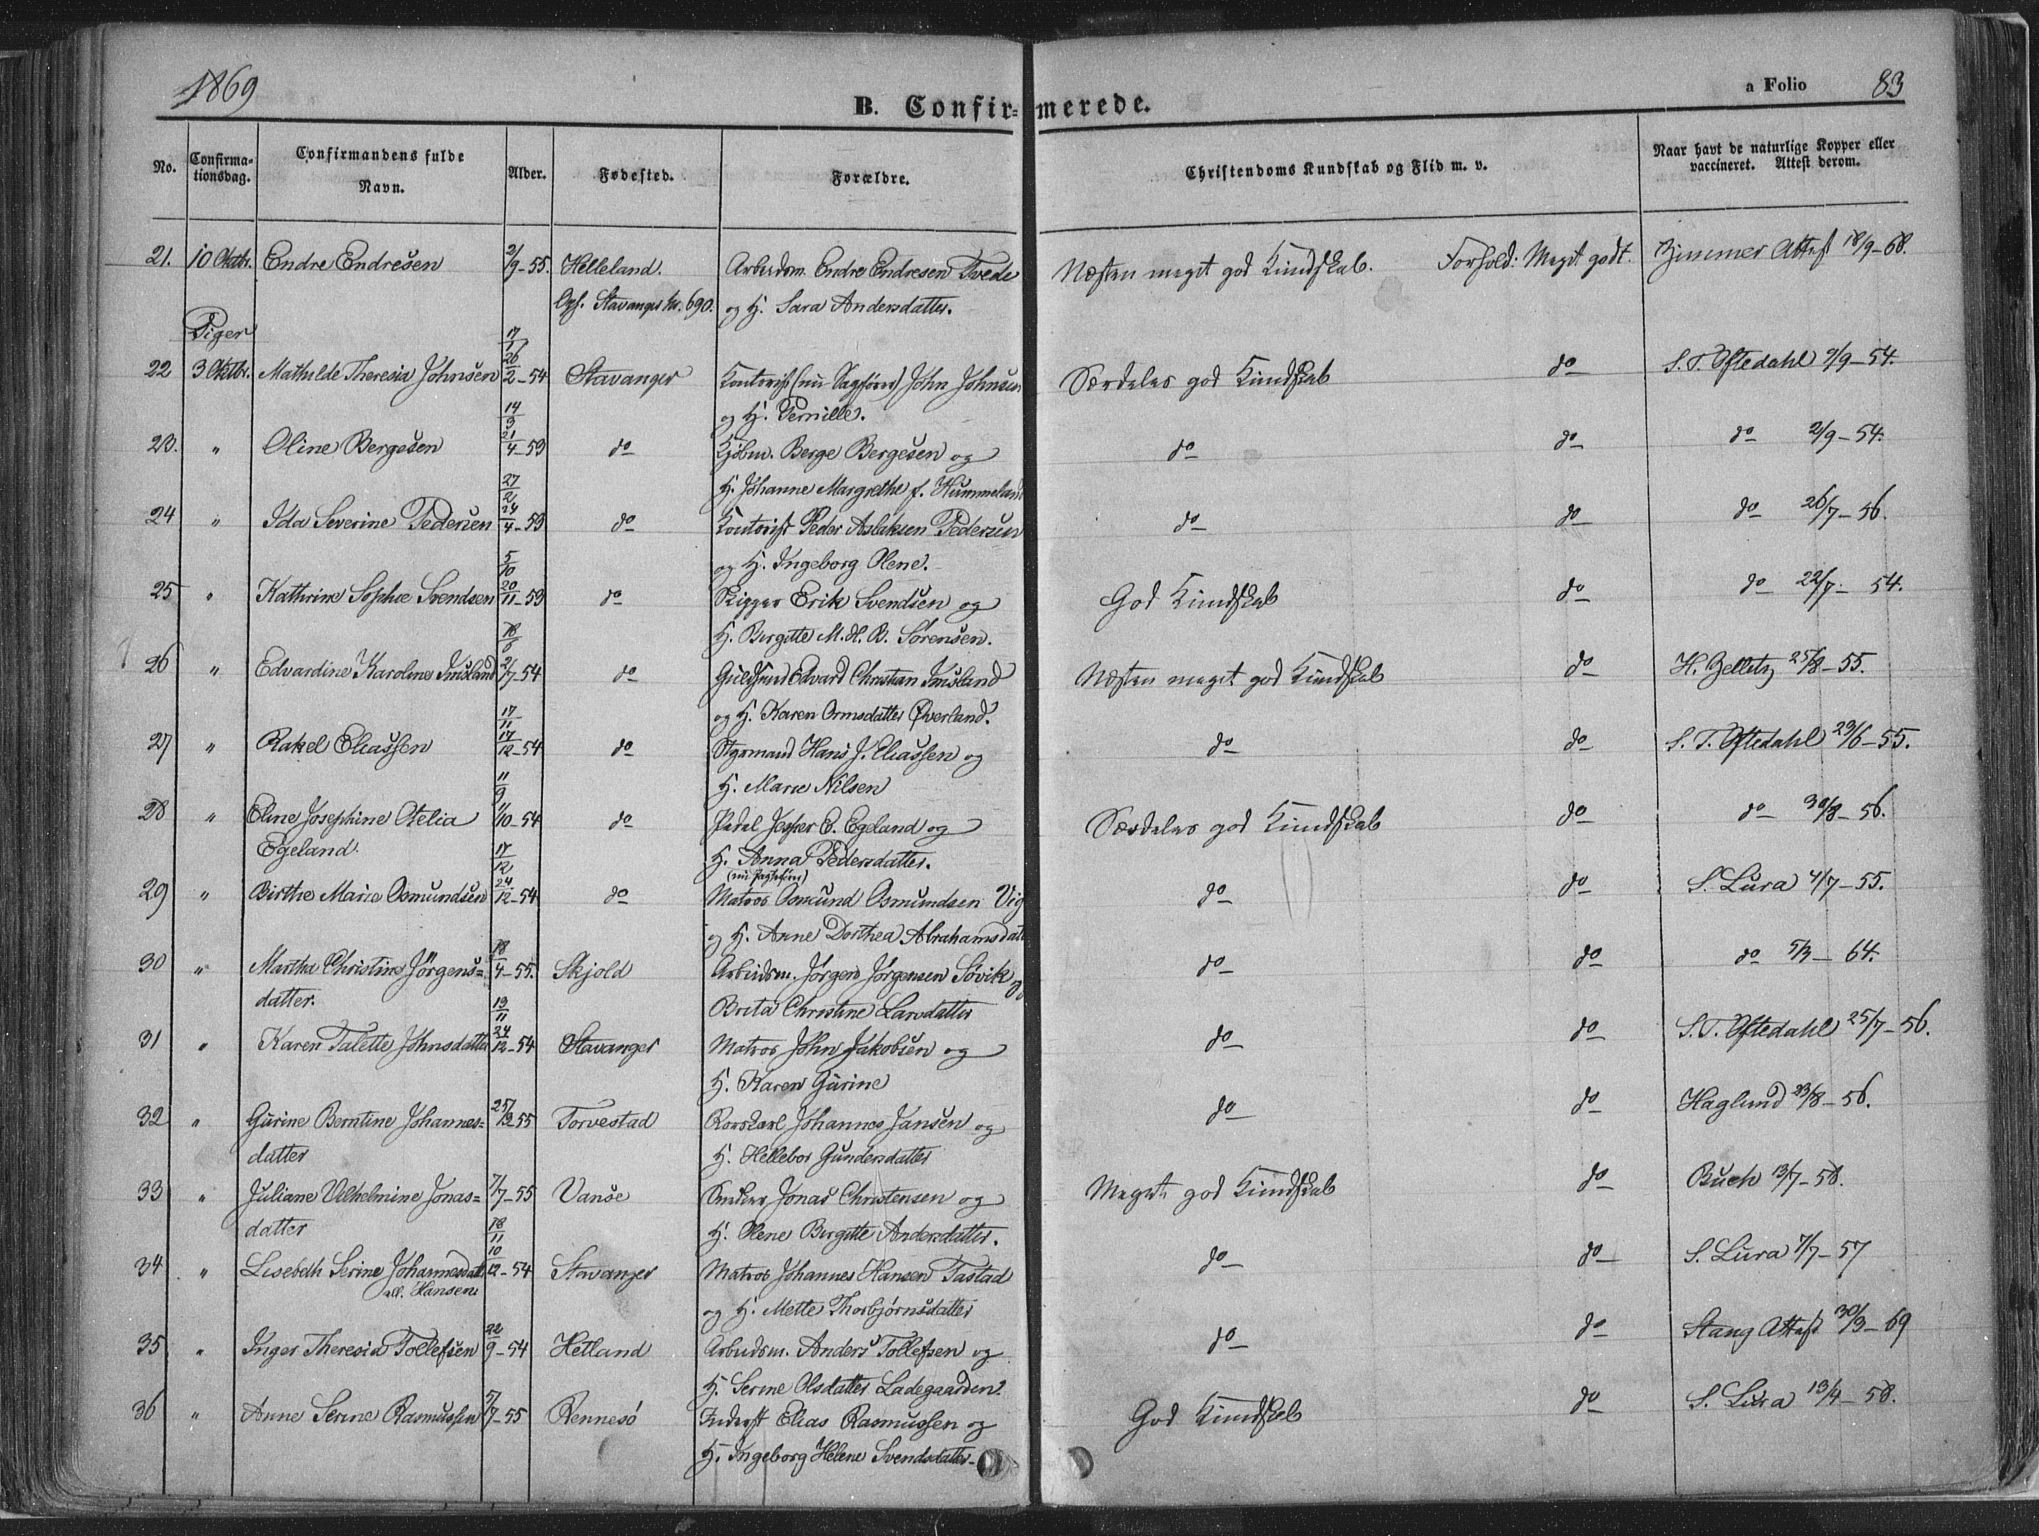 1869
B. Confirmerede.
a Folio 83
No. Confirmationsdag. Confirmandens fulde Navn. Alder. Fødested. Forældre. Christendoms Kundskab og Flid m. v. Naar havt de naturlige Kopper eller vaccineret. Attest derom.
21. 10 Oktbr. Endre Endresen 2/9-55. Helleland. Arbeidsm. Endre Endresen Tvede Næsten meget god Kundskab. Forhold: Meget godt. Zimmer Attest 18/9-68.
Opf. Stavanger Nr. 690. og H. Sara Andersdatter.
Piger
17/1
22 3 Oktbr. Mathilde Theresia Johnsen 26/2-54 Stavanger Kontorist (nu Sagfører) John Johnsen Særdeles god Kundskab do S. T. Oftedahl 2/9-54.
og H. Pernille.
14/3
23. " Oline Bergesen 21/4-53 do Kjøbm. Berge Bergesen og do do do 2/9-54.
H. Johanne Margrethe f. Hummeland
27/2
24 " Ida Severine Pedersen 24/4-53 do Kontorist Peder Aslaksen Pedersen do do do 26/7-56.
og H. Ingeborg Olene.
5/10
25 " Kathrine Sophie Svendsen 20/11-53 do Skipper Erik Svendsen og God Kundskab do do 22/7-54.
H. Birgitte M. H. B. Sørensen.
18/6
26 " Edvardine Karoline Imsland 2/7-54 do Guldsmed Edvard Christian Imsland Næsten meget god Kundskab do H. Zelletz 25/8-55.
og H. Karen Ormsdatter Øverland.
17/11
27 " Rakel Eliassen 17/12-54 do Styrmand Hans J. Eliassen og do do S. T. Oftedahl 29/6-55.
H. Marie Nilsen
11/9
28 " Eline Josephine Otelia 11/10-54 do Pedel Jesper E. Egeland og Særdeles god Kundskab do do 30/8-56.
Egeland. 17/12 H. Anna Pedersdatter.
(nu Jagtefører)
29 " Birthe Marie Osmundsen 24/12-54 do Matros Osmund Osmundsen Vig do do S. Lura 4/7-55.
og H. Anne Dorthea Abrahamsdatt
30 " Martha Christine Jörgens= 18/4-55. Skjold Arbeidsm. Jørgen Jørgensen Søvik og do do do 5/3-64.
datter. Brita Christine Larsdatter
13/11
31 " Karen Talette Johnsdatter 24/12-54 Stavanger Matros John Jakobsen og do do S. T. Oftedahl 25/7-56.
H. Karen Gurine
32 " Gurine Berntine Johannes= 25/3-55 Torvestad Rorskarl Johannes Jansen og do do Haglund 23/8-56.
datter H. Hellebor Gundersdatter
33 " Juliane Vilhelmine Jonas= 7/7-55 Vanse Snedker Jonas Christensen og Meget god Kundskab do Buch 13/7-58.
datter H. Olene Birgitte Andersdatter.
18/11
34 " Lisebeth Serine Johannesdatt 10/12-54 Stavanger Matros Johannes Hansen Tastad do do S. Lura 7/7-57
all. Hansen og H. Mette Thorbjørnsdatter
35 " Inger Theresia Tollefsen 22/9-54 Hetland Arbeidsm. Anders Tollefsen og do do Stang Attest 30/9-69
H. Serine Olsdatter Ladegaarden.
36 " Anne Serine Rasmussen 5/7-55 Rennesø Inderst Elias Rasmussen og God Kundskab do S. Lura 13/4-58.
H. Ingeborg Helene Svendsdatter.